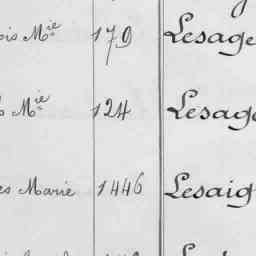 Mie 179 Lesage
Mie 124 Lesage
Marie 1446 Lesaig